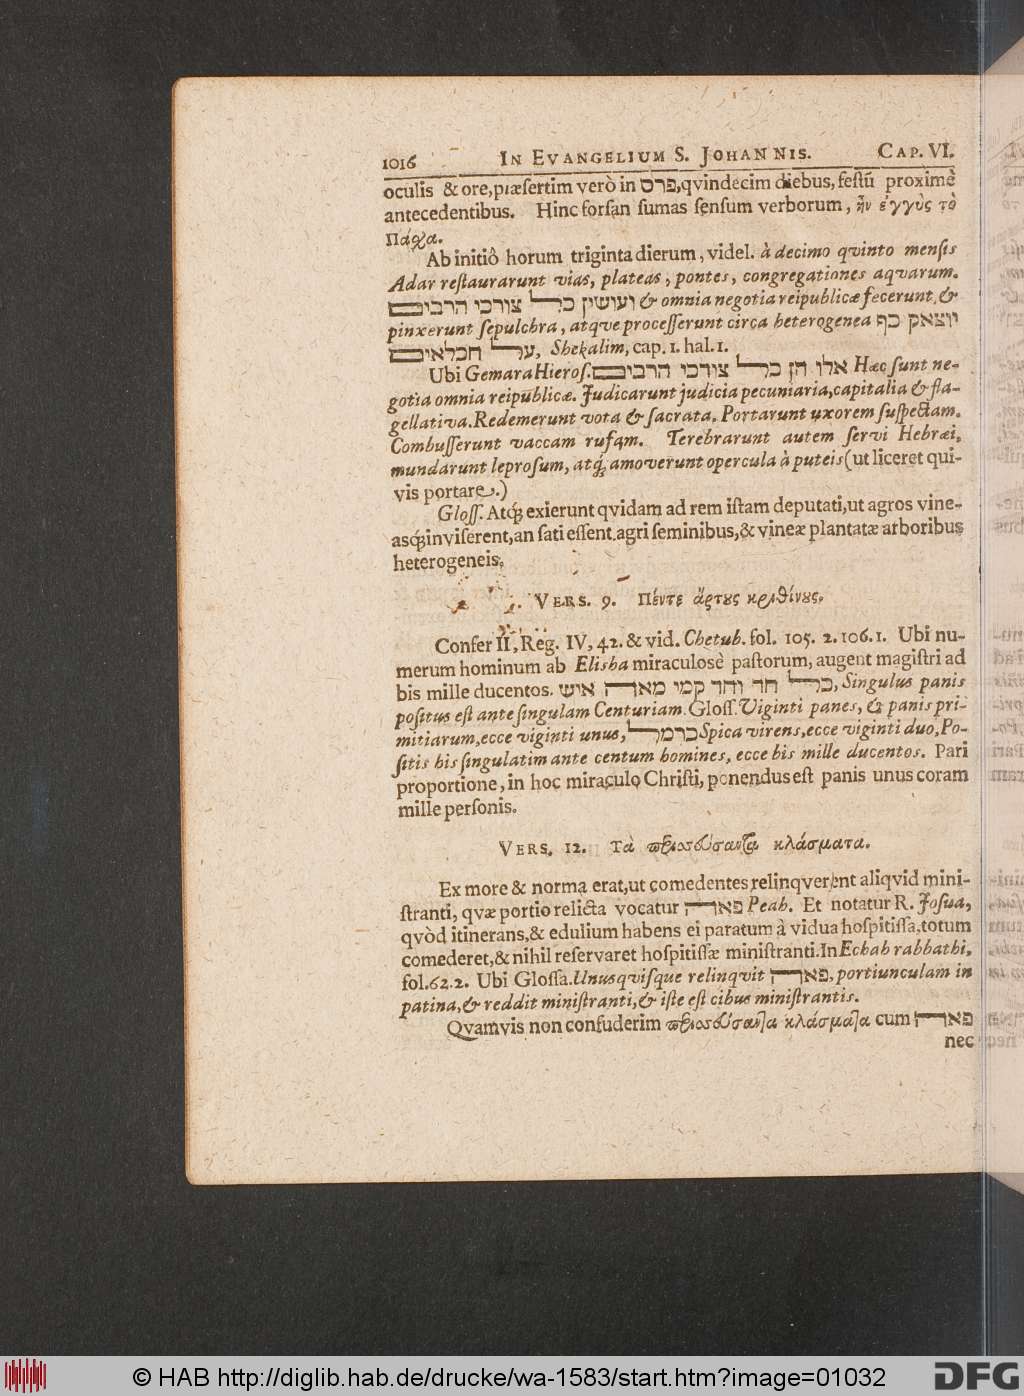 1016 IN EVANGELIUM S. JOHANNIS. CAP. VI.
oculis & ore, præsertim verò in פרס, qvindecim diebus, festū proximè
antecedentibus. Hinc forsan sumas sensum verborum, ἦν ἐγγὺς τὸ
Πάχα.
Ab initiô horum triginta dierum, videl. à decimo qvinto mensis
Adar restaurarunt vias, plateas, pontes, congregationes aqvarum.
ועושין כל צורכי הרבים & omnia negotia reipublicæ fecerunt, &
pinxerunt sepulchra, atqve processerunt circa heterogenea יוצאק כף
על חכלאים, Shekalim, cap. 1. hal. 1.
Ubi Gemara Hieros. אלו הן כל צורכי הרבים Hæc sunt ne-
gotia omnia reipublicæ. Judicarunt judicia pecuniaria, capitalia & fla-
gellativa. Redemerunt vota & sacrata. Portarunt uxorem suspectam.
Combusserunt vaccam rufam. Terebrarunt autem servi Hebræi,
mundarunt leprosum, atq́; amoverunt opercula à puteis (ut liceret qui-
vis portare.)
Gloss. Atq́; exierunt qvidam ad rem istam deputati, ut agros vine-
asq́; inviserent, an sati essent agri seminibus, & vineæ plantatæ arboribus
heterogeneis.
VERS. 9. Πέντε ἄρτυς κριθίνυς.
Confer II, Reg. IV, 42. & vid. Chetub. fol. 105. 2. 106. 1. Ubi nu-
merum hominum ab Elisha miraculosè pastorum, augent magistri ad
bis mille ducentos. כל חד וחד קמי מאה איש, Singulus panis
positus est ante singulam Centuriam. Gloss. Viginti panes, & panis pri-
mitiarum, ecce viginti unus, כרמל Spica virens, ecce viginti duo, Po-
sitis his singulatim ante centum homines, ecce bis mille ducentos. Pari
proportione, in hoc miraculo Christi, ponendus est panis unus coram
mille personis.
VERS. 12. Τὰ περισσεύσαντα κλάσματα.
Ex more & norma erat, ut comedentes relinqverent aliqvid mini-
stranti, qvæ portio relicta vocatur פאה Peah. Et notatur R. Josua,
qvòd itinerans, & edulium habens ei paratum à vidua hospitissa, totum
comederet, & nihil reservaret hospitissæ ministranti. In Echah rabbathi,
fol. 62. 2. Ubi Glossa. Unusqvisque relinqvit פאה, portiunculam in
patina, & reddit ministranti, & iste est cibus ministrantis.
Qvamvis non confuderim περισσεύσαντα κλάσματα cum פאה
nec
© HAB http://diglib.hab.de/drucke/wa-1583/start.htm?image=01032
DFG